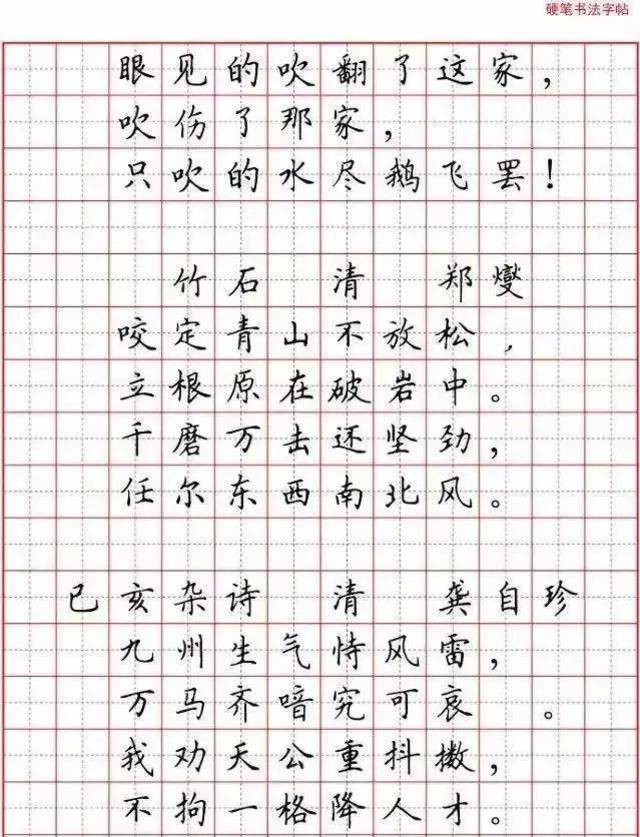 硬笔书法字帖
眼见的吹翻了这家，
吹伤了那家，
只吹的水尽鹅飞罢！
竹石 清 郑燮
咬定青山不放松，
立根原在破岩中。
千磨万击还坚劲，
任尔东西南北风。
己亥杂诗 清 龚自珍
九州生气恃风雷，
万马齐喑究可哀 。
我劝天公重抖擞，
不拘一格降人才。